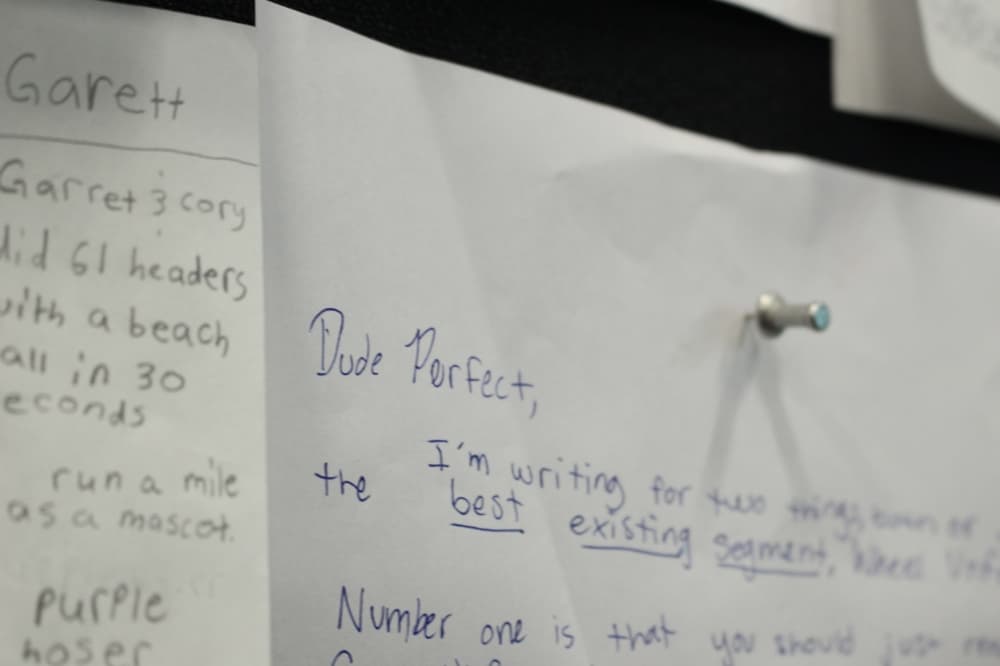 Garett
Garret & cory
did 61 headers
with a beach
all in 30
econds
run a mile
as a mascot.
purple
hoser
Dude Perfect,
I'm writing for two things, both of
the best existing segment, Wheel
Number one is that you should just